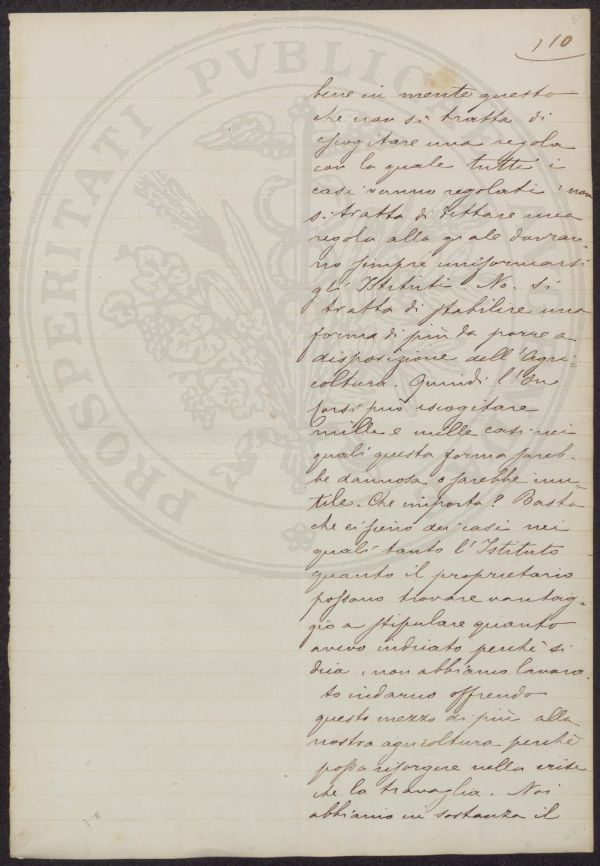 110
bene in mente questo
che non si tratta di
escogitare una regola
con la quale tutti i
casi vanno regolati: non
si tratta di dettare una
regola alla quale dovran-
no sempre uniformarsi
gl'Istituti. No. Si
tratta di stabilire una
forma di più da porre a
disposizione dell'Agri-
coltura. Quindi l'On
può escogitare
mille e mille casi nei
quali questa forma sareb-
be dannosa o sarebbe inu-
tile. Che importa? Basta
che ci sieno dei casi nei
quali tanto l'Istituto
quanto il proprietario
possano trovare vantag-
gio a stipulare quanto
avevo indicato perchè si
dica, non abbiamo lavora-
to indarno offrendo
questo mezzo di più alla
nostra agricoltura perchè
possa risorgere nella crisi
che la travaglia. Noi
abbiamo in sostanza il
PROSPERITATI PVBLICAE